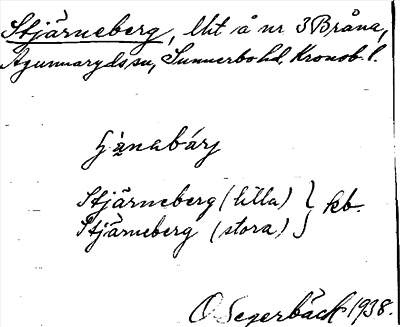 Stjärneberg, lht å nr 3 Bråna,
Agunnaryds sn, Sunnerbo hd, Kronob. l.
Stjärneberg (lilla) } kb.
Stjärneberg (stora)
O Segerbäck 1938.